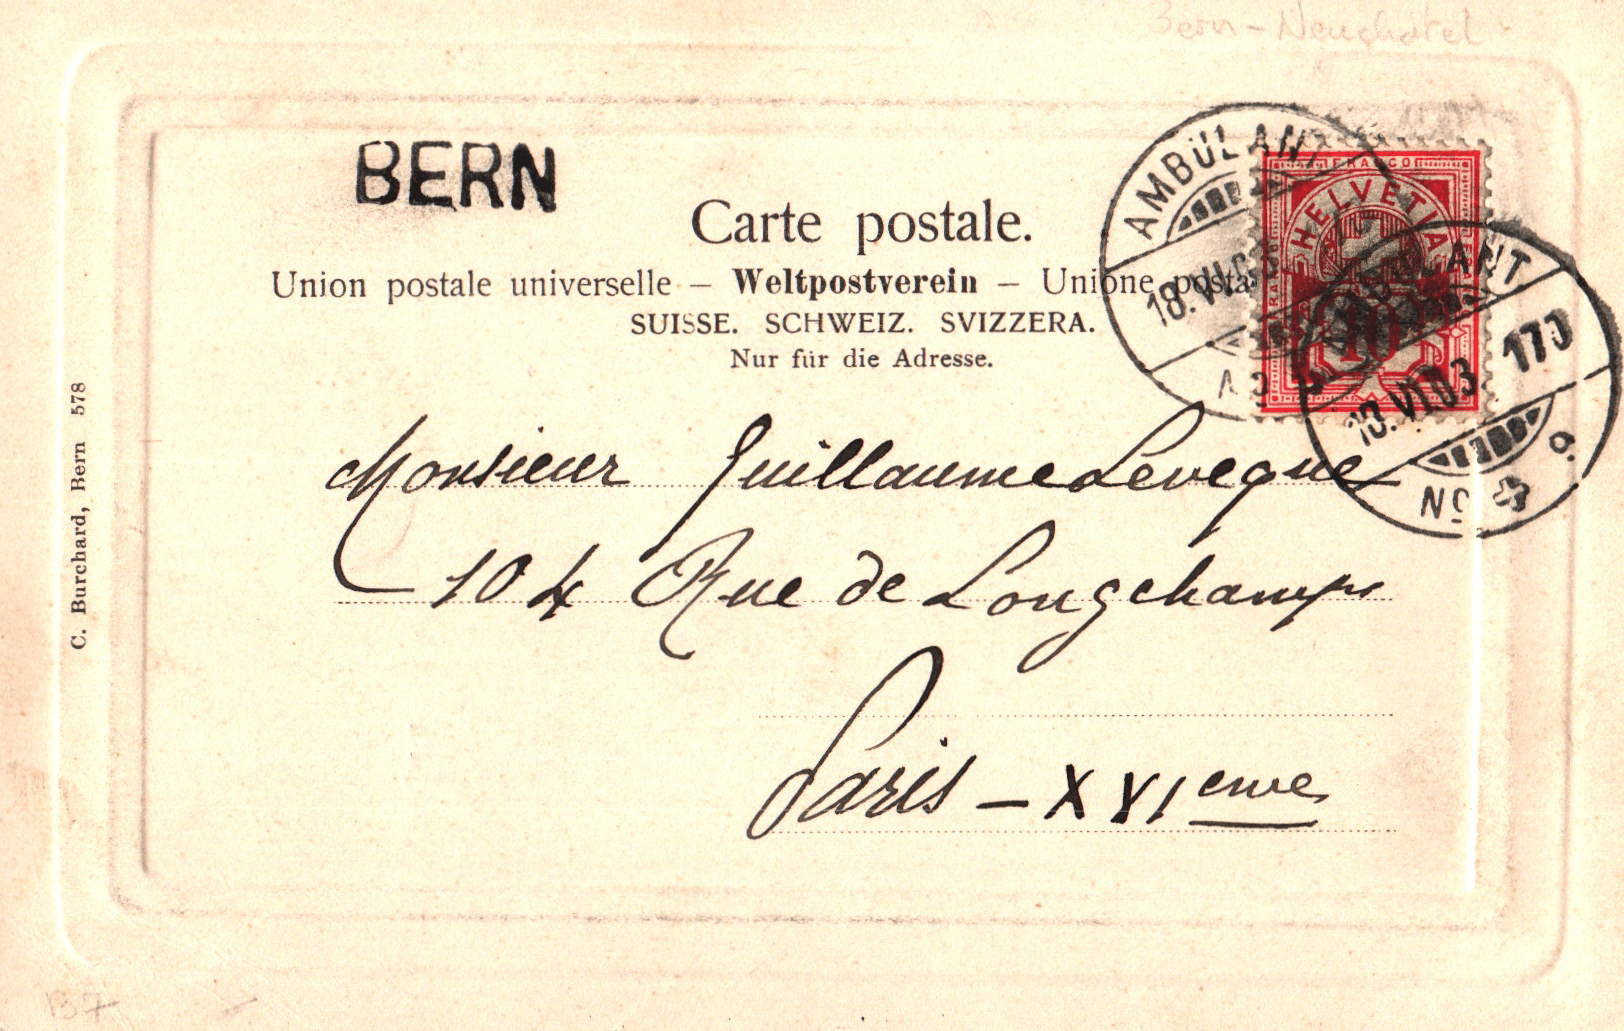 Bern - Neuchatel
BERN
Carte postale.
Union postale universelle – Weltpostverein – Unione posta
SUISSE. SCHWEIZ. SVIZZERA.
Nur für die Adresse.
FRANCO
HELVETIA
10
AMBÜLANT
18.VII.
AMBULANT
18.VII.03 170
No
C. Burchard, Bern 578
Monsieur Guillaume Leveque
104 Rue de Longchamps
Paris – XVIeme
137